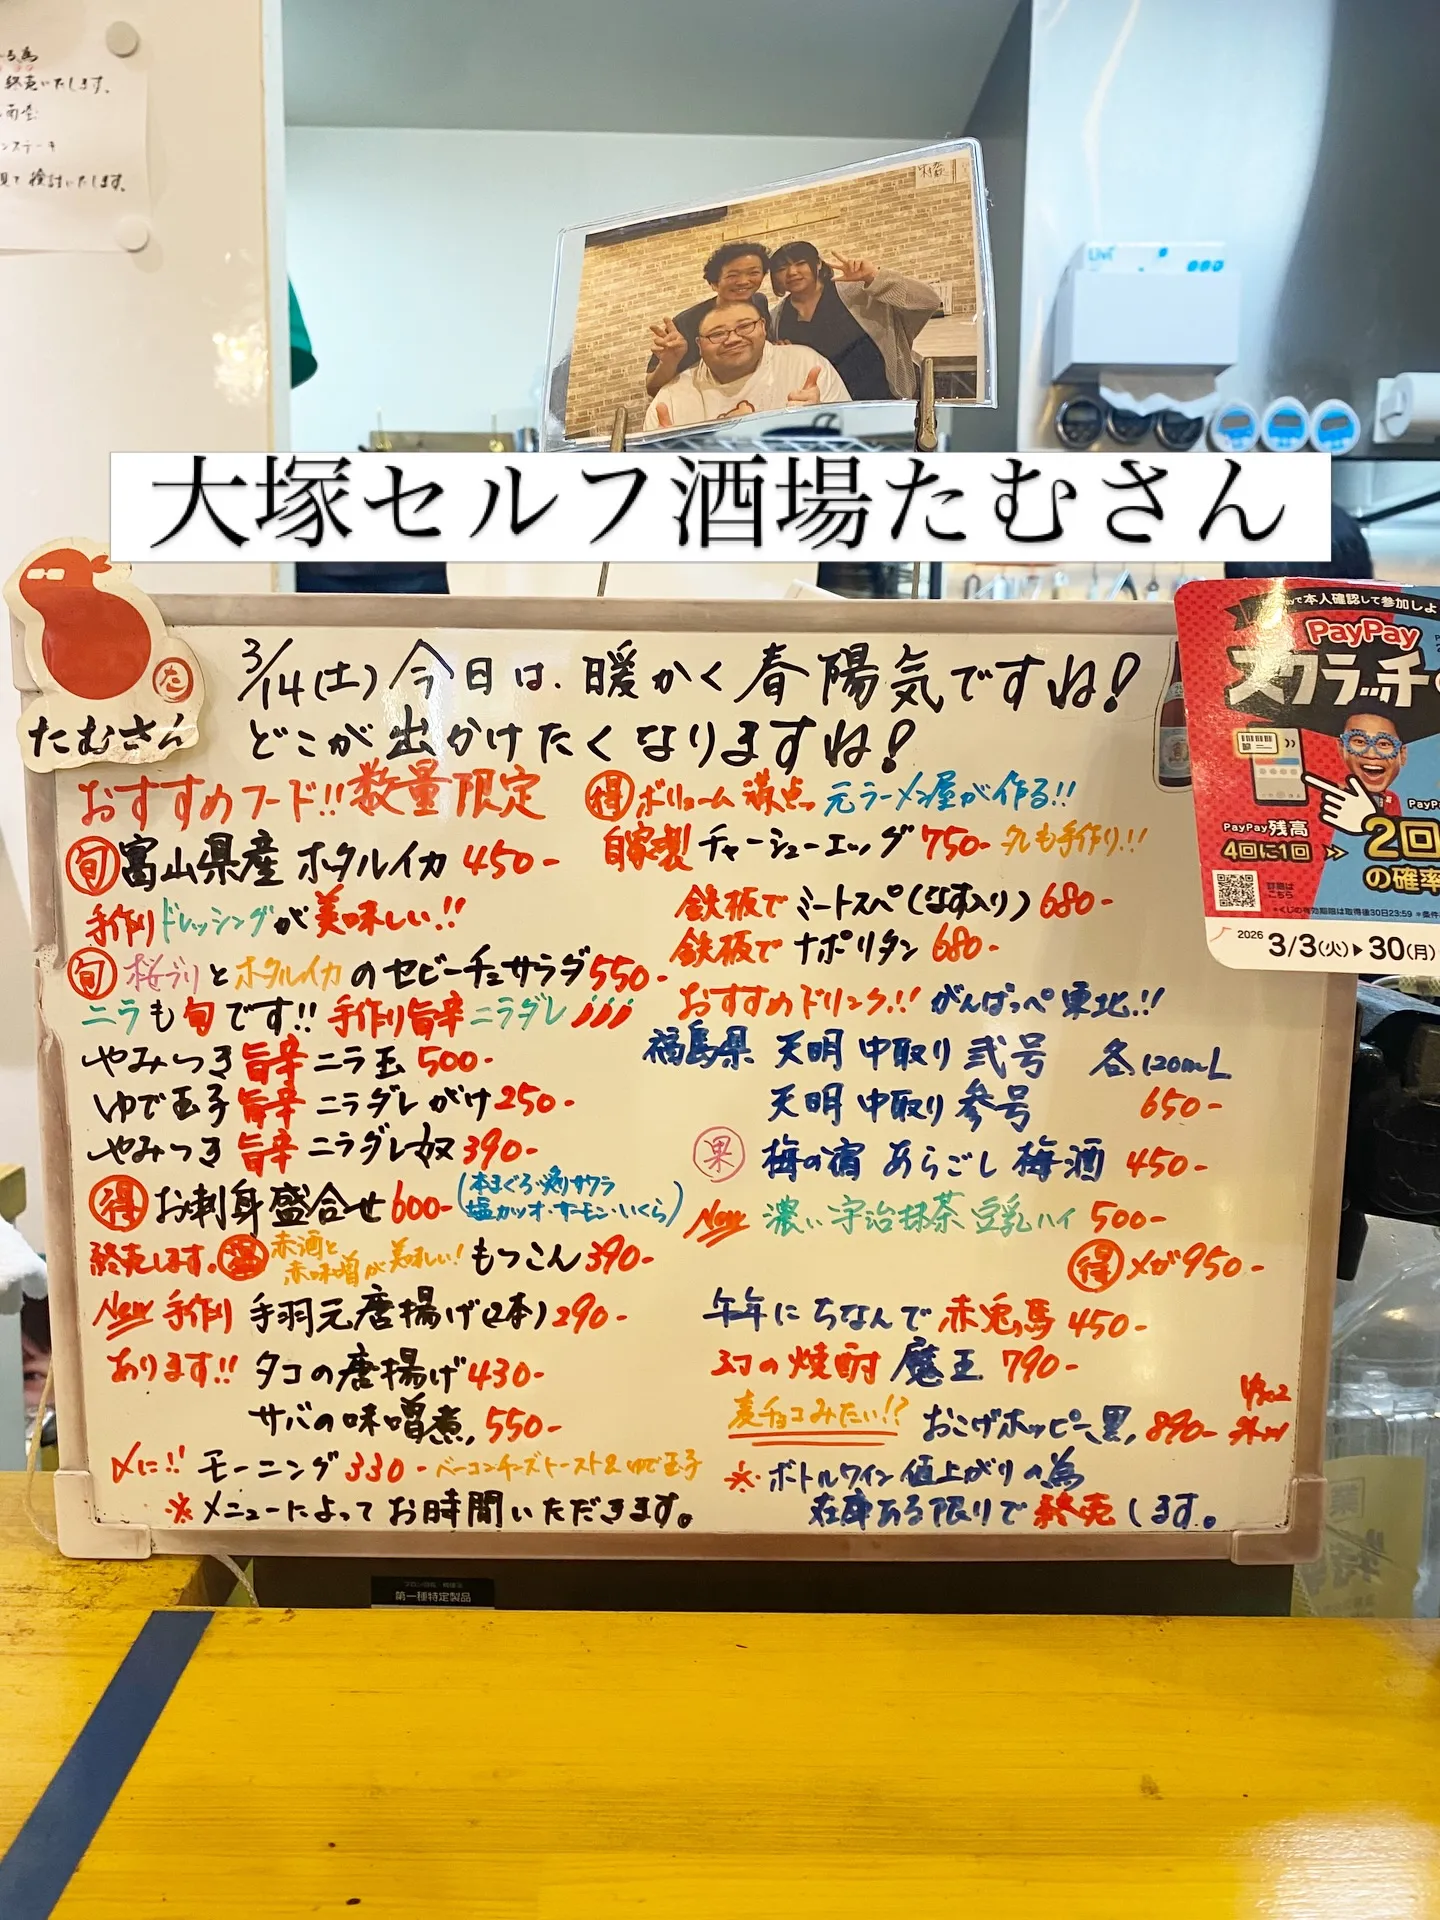 る為
終売いたします。
ンステーキ
見て検討いたします。
大塚セルフ酒場たむさん
た
たむさん
3/14(土)今日は、暖かく春陽気ですね!
どこか出かけたくなりますね!
おすすめフード!!数量限定
旬 富山県産 ホタルイカ 450-
手作りドレッシングが美味しい!!
旬 桜ブリとホタルイカのセビーチェサラダ 550-
ニラも旬です!! 手作り旨辛ニラダレ
やみつき旨辛ニラ玉 500-
ゆで玉子旨辛ニラダレがけ 250-
やみつき旨辛ニラダレ奴 390-
得 お刺身盛合せ 600- (本まぐろ・炙りサワラ
塩カツオ・サーモン・いくら)
終売します。 赤酒と
赤味噌が美味しい! もつこん 390-
New 手作り 手羽元唐揚げ(2本) 290-
あります!! タコの唐揚げ 430-
サバの味噌煮 550-
〆に!! モーニング 330- ベーコンチーズトースト&ゆで玉子
※メニューによってお時間いただきます。
得 ボリューム満点 元ラーメン屋が作る!!
自家製 チャーシューエッグ 750- タレも手作り!!
鉄板で ミートスパ(なす入り) 680-
鉄板で ナポリタン 680-
おすすめドリンク!! がんばっぺ東北!!
福島県 天明 中取り 弐号 各120mL
天明 中取り 参号 650-
果 梅の宿 あらごし梅酒 450-
New 濃い宇治抹茶豆乳ハイ 500-
得 メガ 950-
午年にちなんで赤兎馬 450-
幻の焼酎 魔王 790-
麦チョコみたい!? おこげホッピー黒 890-
※ボトルワイン値上がりの為
在庫ある限りで終売します。
で本人確認して参加しよ
PayPay
スクラッチ
PayPay残高
4回に1回
2回
の確率
詳細は
こちら
*くじの有効期限は取得後30日23:59 *条件
2026 3/3(火)▶30(月)
第一種特定製品